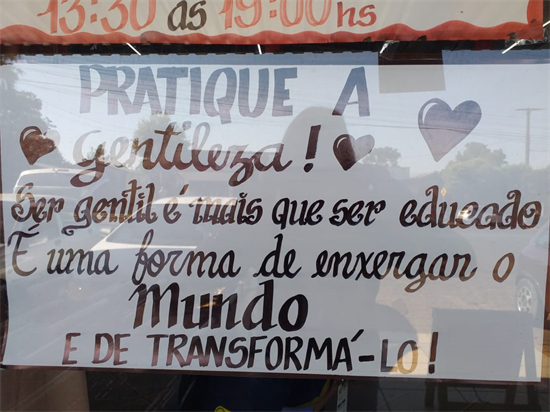 13:30 às 19:00 hs
PRATIQUE A
gentileza!
Ser gentil é mais que ser educado
É uma forma de enxergar o
Mundo
E DE TRANSFORMÁ-LO!